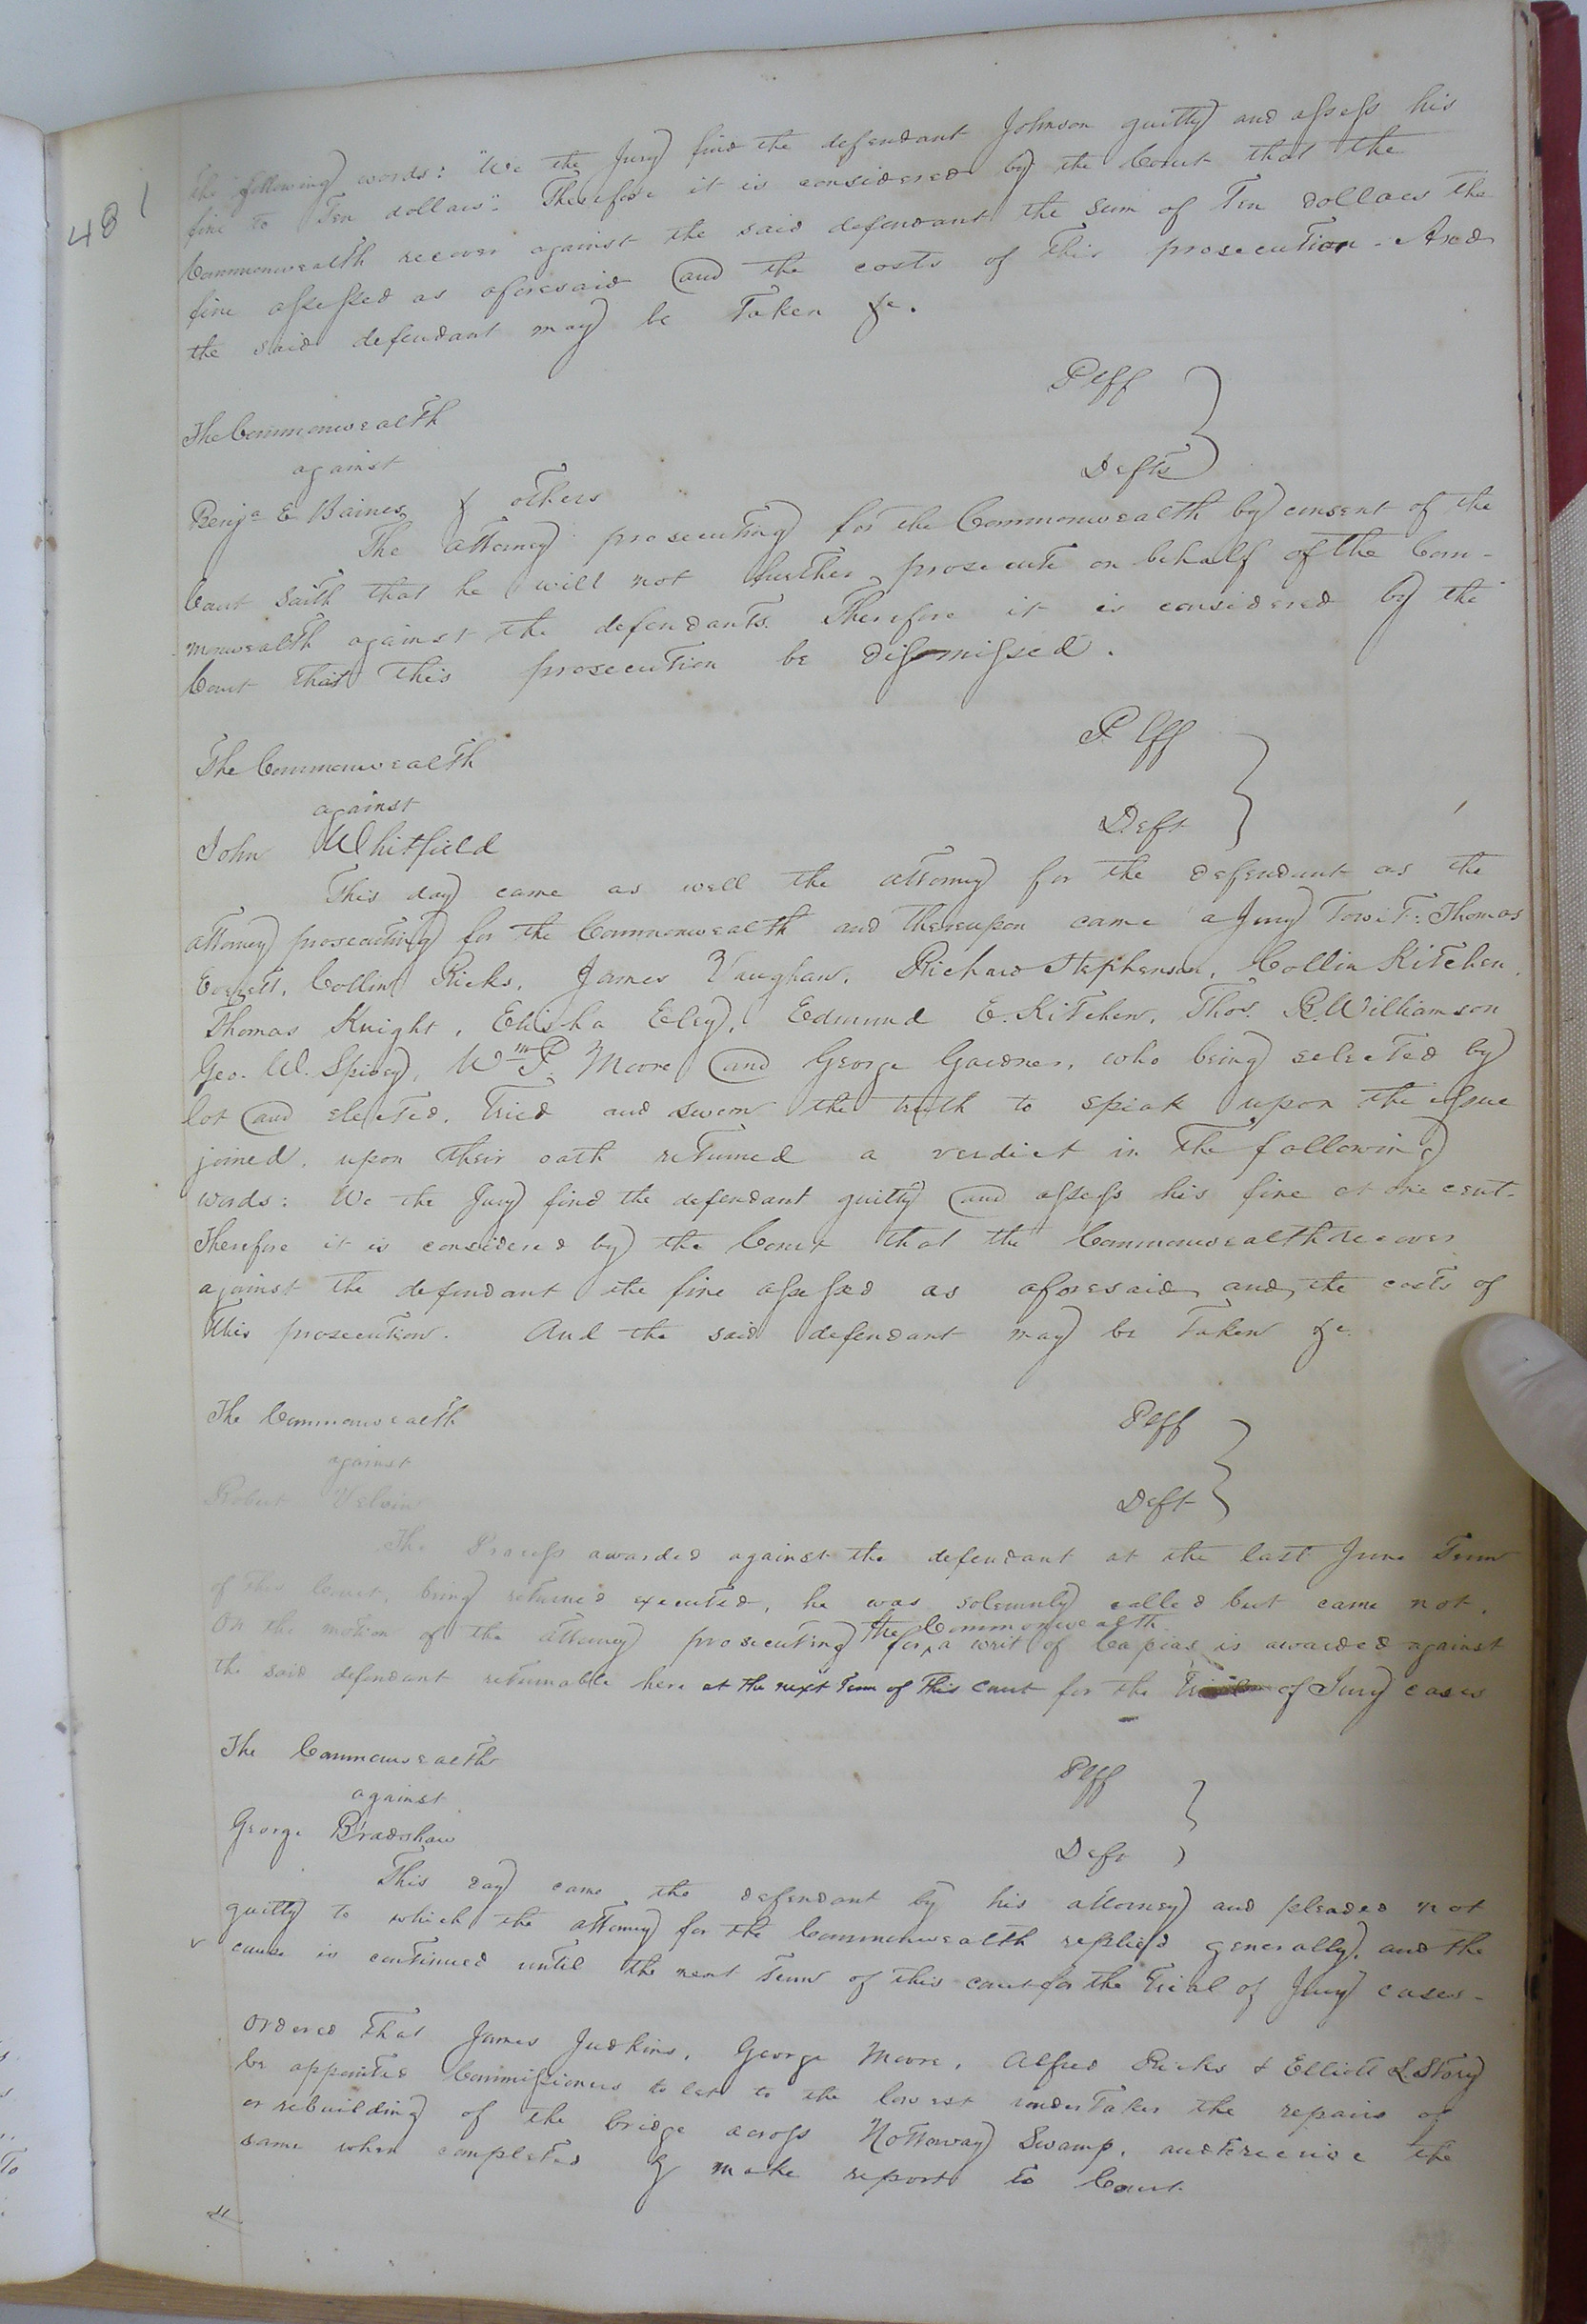 481
the following words: "We the Jury find the defendant Johnson guilty and assess his
fine to Ten dollars". Therefore it is considered by the Court that the
Commonwealth recover against the said defendant the sum of Ten dollars the
fine assessed as aforesaid and the costs of this prosecution - And
the said defendant may be Taken &c.
The Commonwealth Plff
against
Benja E Baines & others Defts
The attorney prosecuting for the Commonwealth by consent of the
Court Saith that he will not further prosecute on behalf of the Com-
monwealth against the defendants. Therefore it is considered by the
Court that this prosecution be dismissed.
The Commonwealth Plff
against
John Whitfield Deft
This day came as well the attorney for the defendant as the
attorney prosecuting for the Commonwealth and thereupon came a Jury Towit: Thomas
Everett, Collin Ricks, James Vaughan, Richard Stephenson, Collin Kitchen,
Thomas Knight, Elisha Eley, Edmund E. Kitchen, Thos. R. Williamson
Geo. W. Spivey, Wm P. Moore and George Gardner, who being selected by
lot and elected, Tried and sworn the truth to speak upon the issue
joined, upon their oath returned a verdict in the following
words: We the Jury find the defendant guilty and assess his fine at one cent.
Therefore it is considered by the Court that the Commonwealth recover
against the defendant the fine assessed as aforesaid and the costs of
this prosecution. And the said defendant may be Taken &c.
The Commonwealth Plff
against
Robert Velvin Deft
The Process awarded against the defendant at the last June Term
of this Court, being returned executed, he was solemnly called but came not,
On the motion of the attorney prosecuting for the Commonwealth a writ of Capias is awarded against
the said defendant returnable here at the next Term of this Court for the Trial of Jury cases
The Commonwealth Plff
against
George Bradshaw Deft
This day came the defendant by his attorney and pleaded not
guilty to which the attorney for the Commonwealth replied generally, and the
cause is continued until the next Term of this court for the Trial of Jury cases -
Ordered that James Judkins, George Moore, Alfred Ricks & Elliott L Story
be appointed Commissioners to let to the lowest undertaker the repairs of
or rebuilding of the bridge across Nottoway Swamp, and to receive the
same when completed & make report to Court.